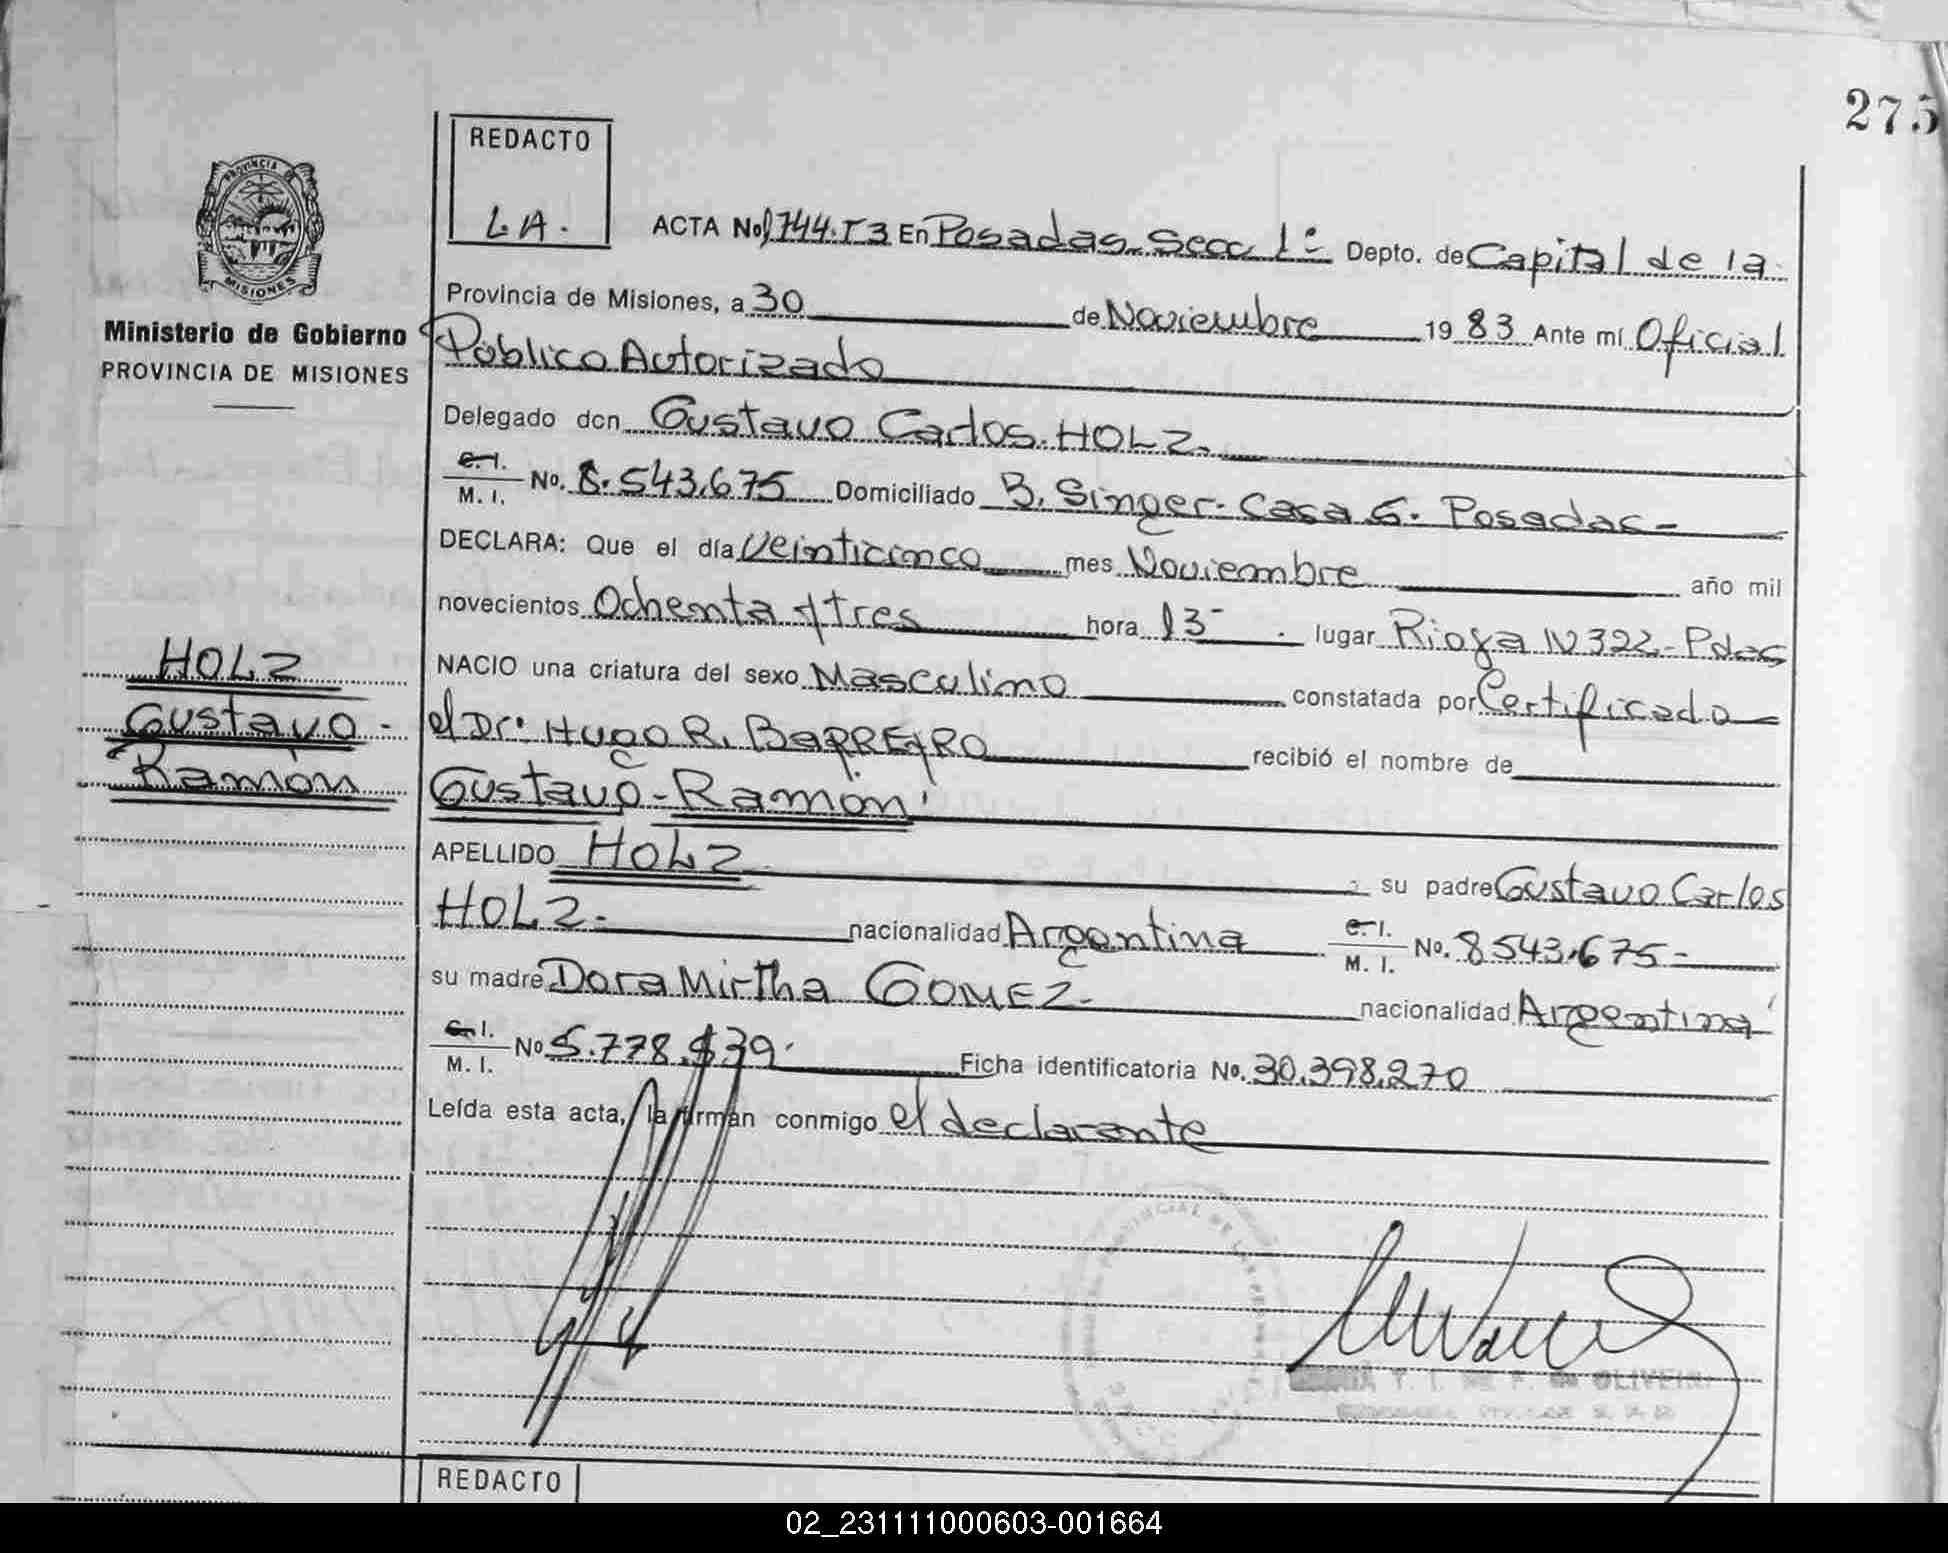 275
REDACTO
L.A.
PROVINCIA DE
MISIONES
Ministerio de Gobierno
PROVINCIA DE MISIONES
ACTA No 1744.T3 En Posadas Secc 1º Depto. de Capital de la
Provincia de Misiones, a 30 de Noviembre 1983 Ante mí Oficial
Público Autorizado
Delegado don Gustavo Carlos HOLZ
C.I. M.I. No. 8.543.675 Domiciliado B. Singer - Casa 6. Posadas -
DECLARA: Que el día veinticinco mes Noviembre año mil
novecientos Ochenta y tres hora 13 - lugar Rioja N 322 - Pdas
NACIO una criatura del sexo Masculino constatada por Certificado
el Dr. Hugo R. BARREYRO recibió el nombre de
Gustavo - Ramón
APELLIDO HOLZ su padre Gustavo Carlos
HOLZ - nacionalidad Argentina C.I. M.I. No. 8543.675 -
su madre Dora Mirtha GOMEZ - nacionalidad Argentina
C.I. M.I. No 5.778. Ficha identificatoria No. 30.398.270
Leída esta acta, la firman conmigo el declarante
HOLZ
Gustavo -
Ramón
REDACTO
02_231111000603-001664